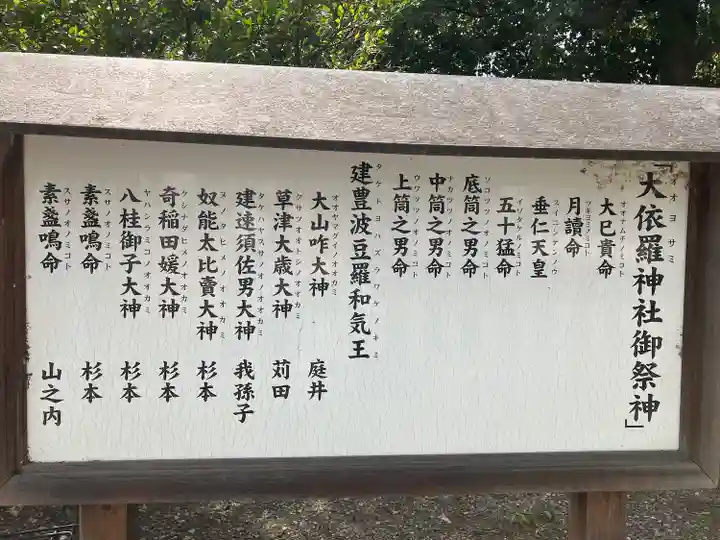 「大依羅神社御祭神」
オオヨサミ
大已貴命
オオナムチノミコト
月讀命
ツキヨミノミコト
垂仁天皇
スイニンテンノウ
五十猛命
イソタケルノミコト
底筒之男命
ソコツツノオノミコト
中筒之男命
ナカツツノオノミコト
上筒之男命
ウワツツノオノミコト
建豊波豆羅和気王
タケトヨハズラワケノキミ
大山咋大神 庭井
オオヤマクイノオオカミ
草津大歳大神 苅田
クサツオオトシノオオカミ
建速須佐男大神 我孫子
タケハヤスサノオノオオカミ
奴能太比賣大神 杉本
ヌノタヒメノオオカミ
奇稲田媛大神 杉本
ケシナダヒメノオオカミ
八桂御子大神 杉本
ヤハシラミコノオオカミ
素盞鳴命 杉本
スサノオノミコト
素盞鳴命 山之内
スサノオノミコト